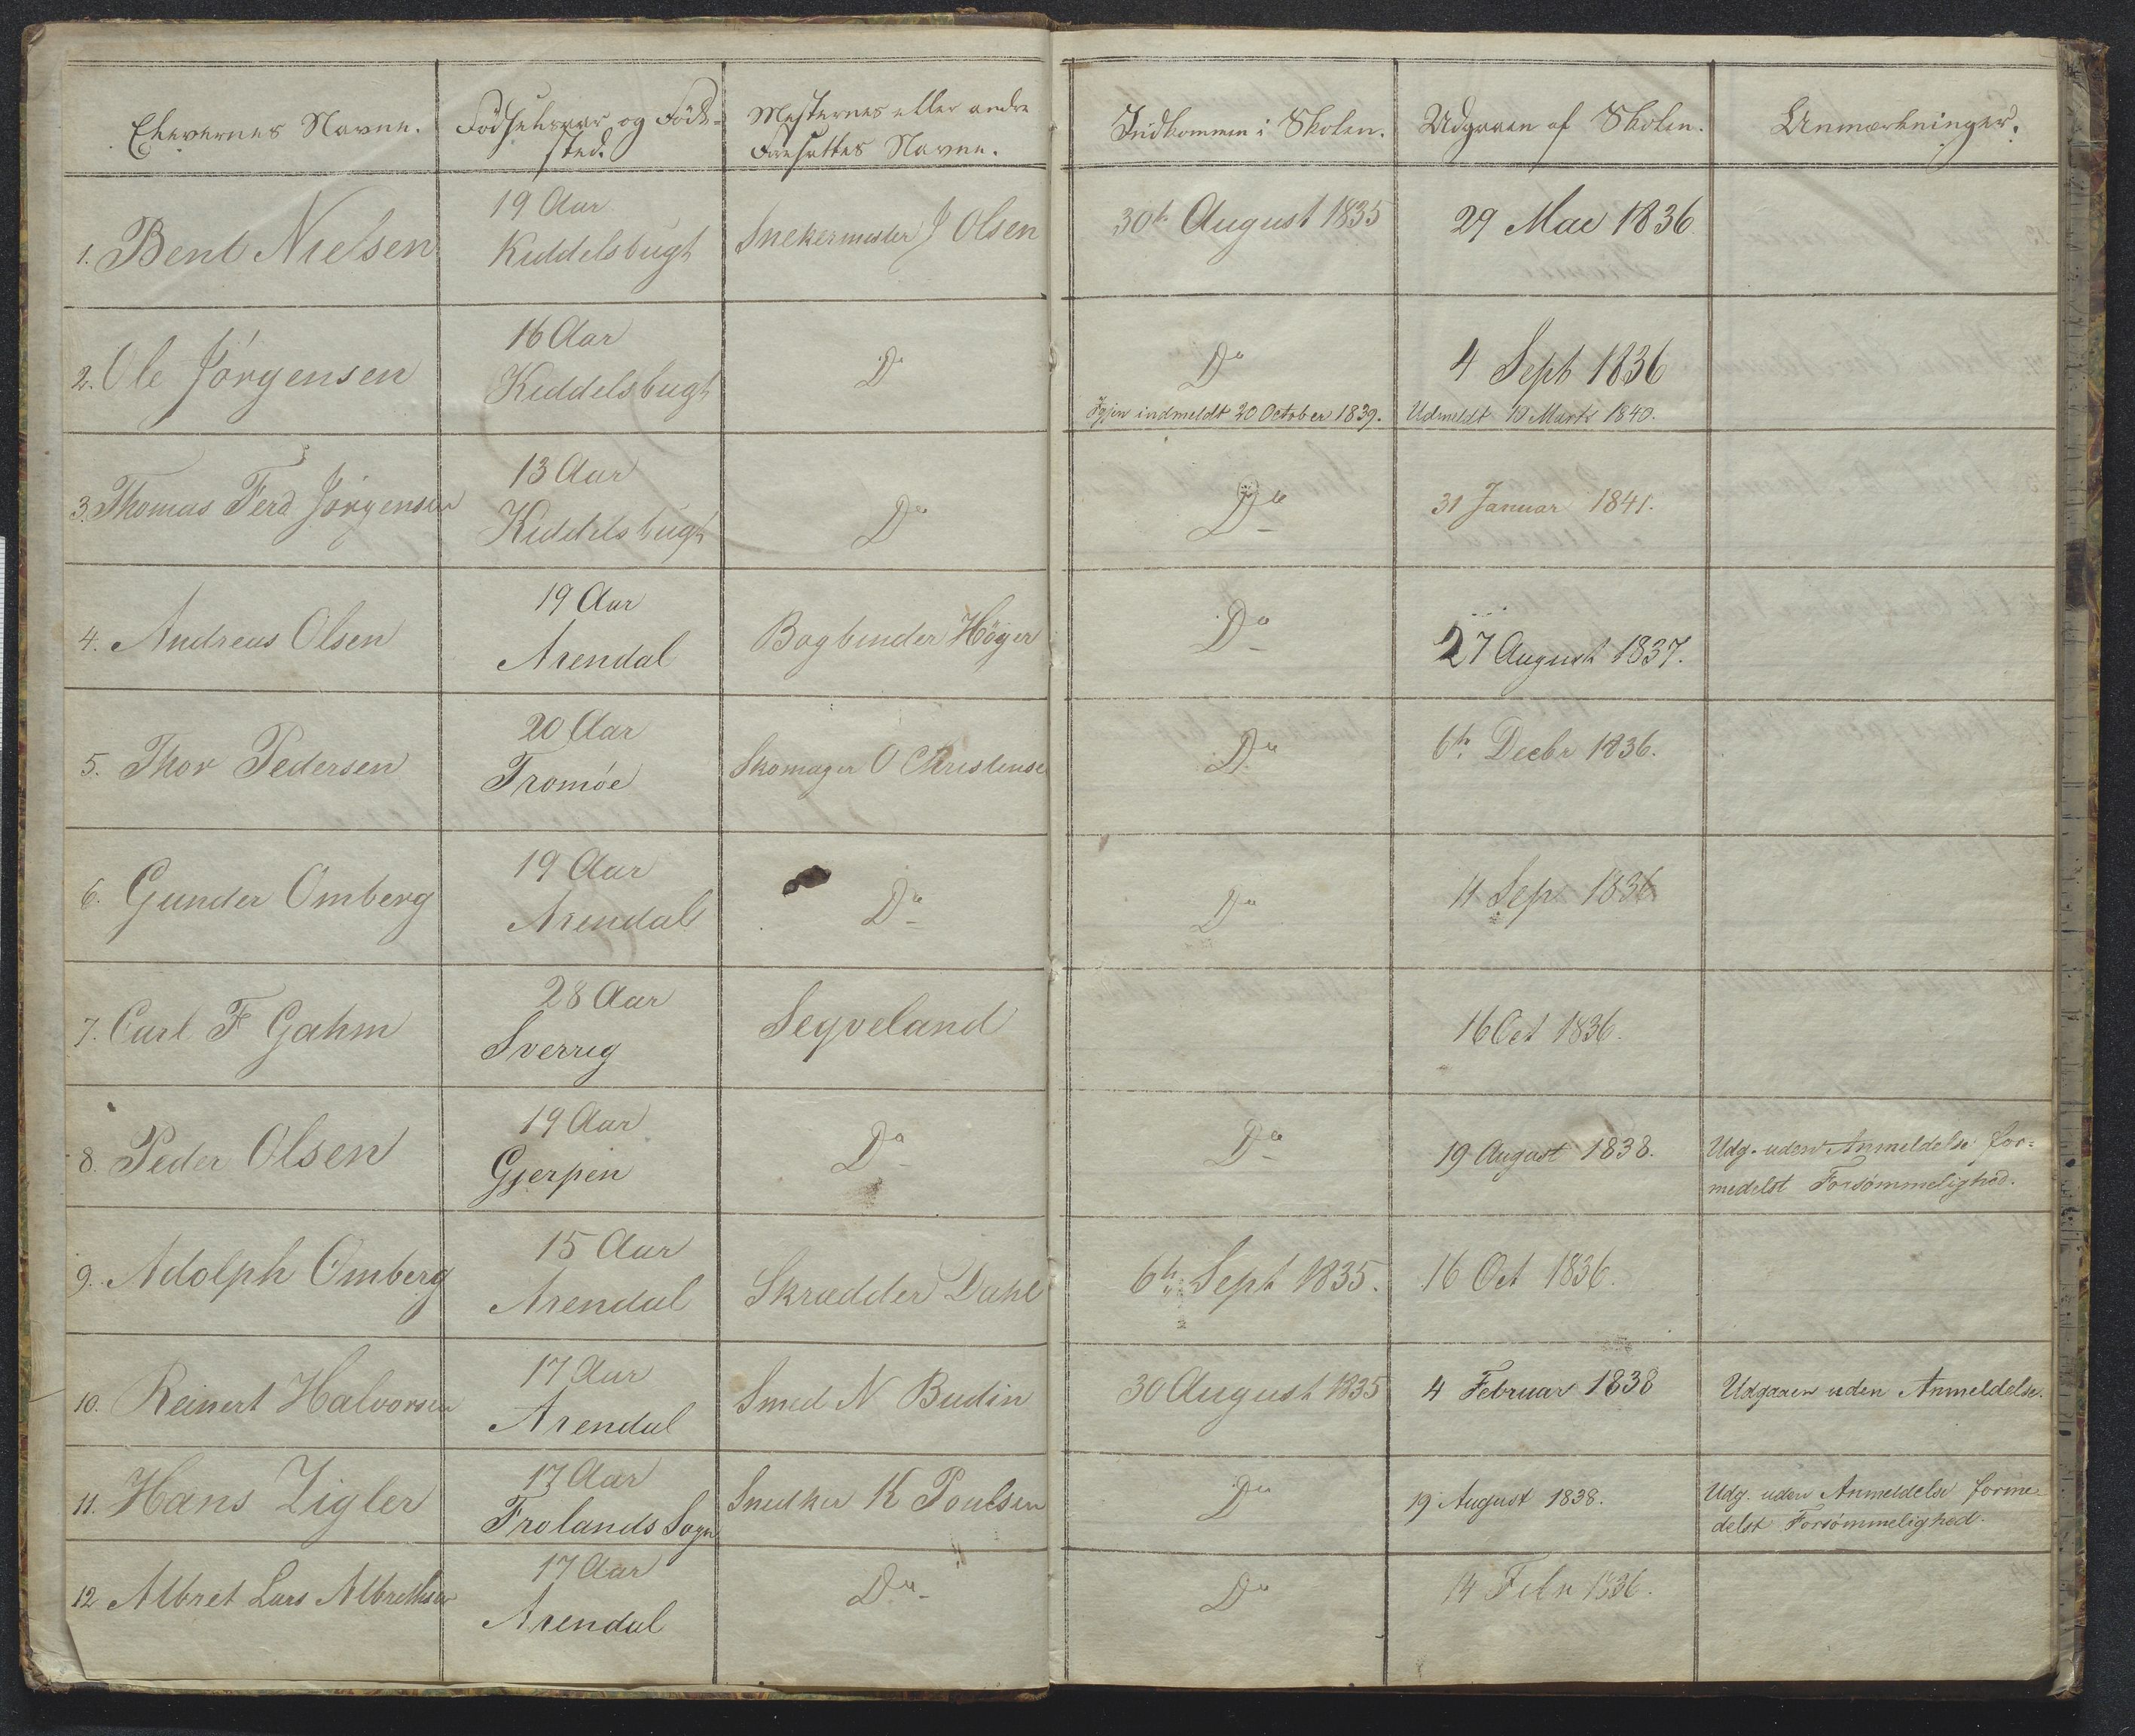 Elevernes Navne. Födselsaar og Föde- Mesternes eller andre Indkommen i Skolen. Udgaaen af Skolen. Anmærkninger.
sted. Foresattes Navne.
19 Aar
1. Bent Nielsen Kiddelsbugt Snekermester J Olsen 30te August 1835 29 Mai 1836
16 Aar
2. Ole Jörgensen Kiddelsbugt Do Do 4 Sept 1836
Igjen indmeldt 20 October 1839. Udmeldt 10 Marts 1840.
13 Aar
3. Thomas Ferd Jörgensen Kiddelsbugt Do Do 31 Januar 1841.
19 Aar
4. Andreas Olsen Arendal Bogbinder Höyer Do 27 August 1837.
20 Aar
5. Thor Pedersen Tromöe Skomager O Christense Do 6te Decbr 1836.
19 Aar
6. Gunder Omberg Arendal Do Do 11 Sep 1836
28 Aar
7. Carl F Gahm Sverrig Seqveland 16 Oct 1836.
19 Aar
8. Peder Olsen Gjerpen Do Do 19 August 1838. Udg. uden Anmeldelse for-
medelst Forsömmelighed.
15 Aar
9. Adolph Omberg Arendal Skrædder Dahl 6te Sept 1835. 16 Oct 1836.
17 Aar
10. Reinert Halvorsen Arendal Smed N Budin 30 August 1835 4 Februar 1838 Udgaaen uden Anmeldelse.
17 Aar
11. Hans Zigler Frolands Sogn Snedker K Poulsen Do 19 August 1838. Udg. uden Anmeldelse forme-
delst Forsömmelighed.
17 Aar
12 Albret Lars Albrethsen Arendal Do Do 14 Febr 1836.